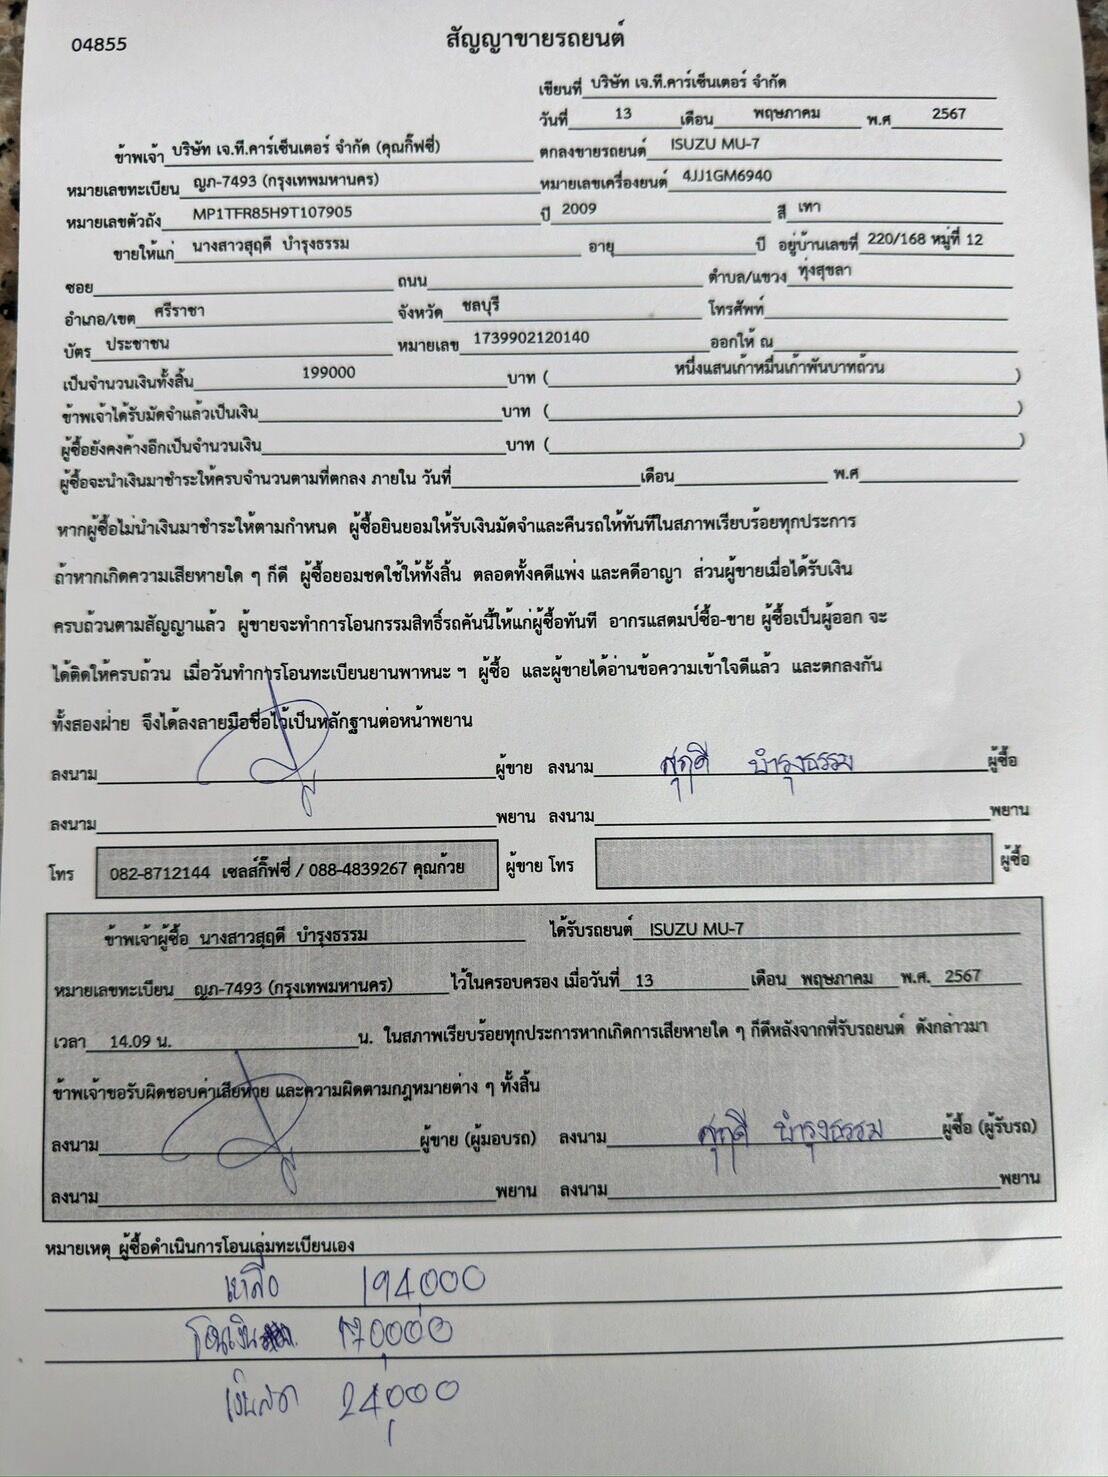 04855
สัญญาขายรถยนต์
เขียนที่ บริษัท เจ.ที.คาร์เซ็นเตอร์ จำกัด
วันที่ 13 เดือน พฤษภาคม พ.ศ 2567
ข้าพเจ้า บริษัท เจ.ที.คาร์เซ็นเตอร์ จำกัด (คุณกิ๊ฟซี่) ตกลงขายรถยนต์ ISUZU MU-7
หมายเลขทะเบียน ญภ-7493 (กรุงเทพมหานคร) หมายเลขเครื่องยนต์ 4JJ1GM6940
หมายเลขตัวถัง MP1TFR85H9T107905 ปี 2009 สี เทา
ขายให้แก่ นางสาวสุฤดี บำรุงธรรม อายุ ปี อยู่บ้านเลขที่ 220/168 หมู่ที่ 12
ซอย ถนน ตำบล/แขวง ทุ่งสุขลา
อำเภอ/เขต ศรีราชา จังหวัด ชลบุรี โทรศัพท์
บัตร ประชาชน หมายเลข 1739902120140 ออกให้ ณ
เป็นจำนวนเงินทั้งสิ้น 199000 บาท ( หนึ่งแสนเก้าหมื่นเก้าพันบาทถ้วน )
ข้าพเจ้าได้รับมัดจำแล้วเป็นเงิน บาท ( )
ผู้ซื้อยังคงค้างอีกเป็นจำนวนเงิน บาท ( )
ผู้ซื้อจะนำเงินมาชำระให้ครบจำนวนตามที่ตกลง ภายใน วันที่ เดือน พ.ศ
หากผู้ซื้อไม่นำเงินมาชำระให้ตามกำหนด ผู้ซื้อยินยอมให้รับเงินมัดจำและคืนรถให้ทันทีในสภาพเรียบร้อยทุกประการ
ถ้าหากเกิดความเสียหายใด ๆ ก็ดี ผู้ซื้อยอมชดใช้ให้ทั้งสิ้น ตลอดทั้งคดีแพ่ง และคดีอาญา ส่วนผู้ขายเมื่อได้รับเงิน
ครบถ้วนตามสัญญาแล้ว ผู้ขายจะทำการโอนกรรมสิทธิ์รถคันนี้ให้แก่ผู้ซื้อทันที อากรแสตมป์ซื้อ-ขาย ผู้ซื้อเป็นผู้ออก จะ
ได้ติดให้ครบถ้วน เมื่อวันทำการโอนทะเบียนยานพาหนะ ฯ ผู้ซื้อ และผู้ขายได้อ่านข้อความเข้าใจดีแล้ว และตกลงกัน
ทั้งสองฝ่าย จึงได้ลงลายมือชื่อไว้เป็นหลักฐานต่อหน้าพยาน
ลงนาม ผู้ขาย ลงนาม สุฤดี บำรุงธรรม ผู้ซื้อ
ลงนาม พยาน ลงนาม พยาน
โทร 082-8712144 เซลส์กิ๊ฟซี่ / 088-4839267 คุณก้วย ผู้ขาย โทร ผู้ซื้อ
ข้าพเจ้าผู้ซื้อ นางสาวสุฤดี บำรุงธรรม ได้รับรถยนต์ ISUZU MU-7
หมายเลขทะเบียน ญภ-7493 (กรุงเทพมหานคร) ไว้ในครอบครอง เมื่อวันที่ 13 เดือน พฤษภาคม พ.ศ. 2567
เวลา 14.09 น. น. ในสภาพเรียบร้อยทุกประการหากเกิดการเสียหายใด ๆ ก็ดีหลังจากที่รับรถยนต์ ดังกล่าวมา
ข้าพเจ้าขอรับผิดชอบค่าเสียหาย และความผิดตามกฎหมายต่าง ๆ ทั้งสิ้น
ลงนาม ผู้ขาย (ผู้มอบรถ) ลงนาม สุฤดี บำรุงธรรม ผู้ซื้อ (ผู้รับรถ)
ลงนาม พยาน ลงนาม พยาน
หมายเหตุ ผู้ซื้อดำเนินการโอนเล่มทะเบียนเอง
เหลือ 194,000
โอนเงิน 170,000
เงินสด 24,000